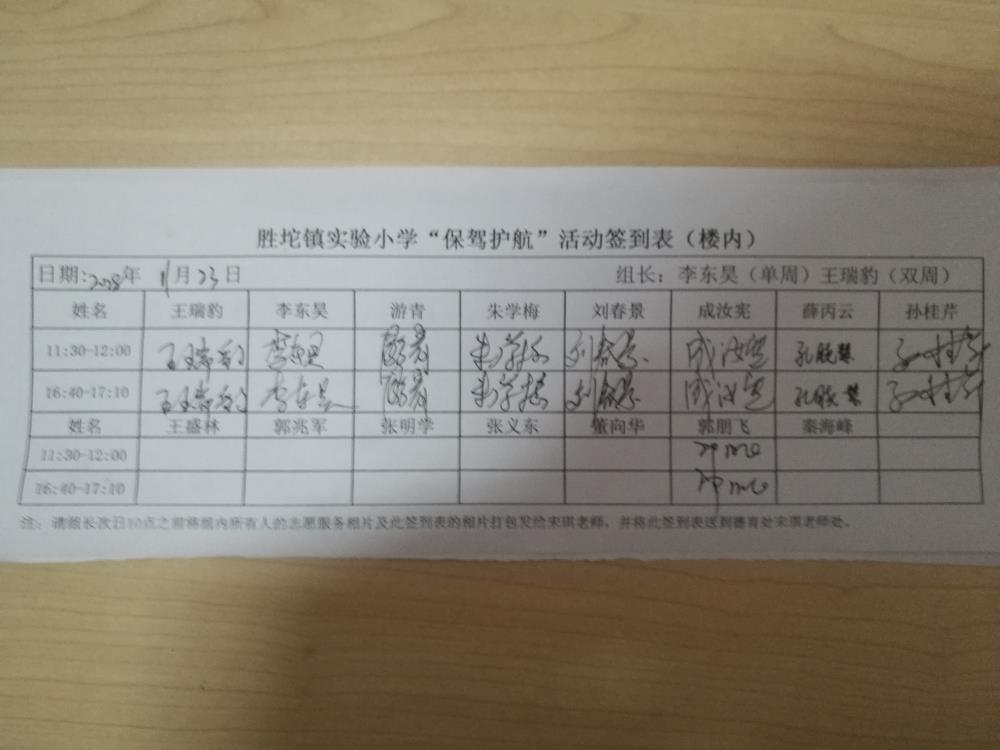 胜坨镇实验小学“保驾护航”活动签到表（楼内）
日期:2018年 11月23日 组长：李东昊（单周）王瑞豹（双周）
姓名 王瑞豹 李东昊 游青 朱学梅 刘春景 成汝宪 薛丙云 孙桂芹
11:30-12:00 王瑞豹 李东昊 游青 朱学梅 刘春景 成汝宪 孔晓慧 孙桂芹
16:40-17:10 王瑞豹 李东昊 游青 朱学梅 刘春景 成汝宪 孔晓慧 孙桂芹
姓名 王盛林 郭兆军 张明学 张义东 董向华 郭朋飞 秦海峰
11:30-12:00
16:40-17:10
注：请组长次日10点之前将组内所有人的志愿服务相片及此签到表的相片打包发给宋琪老师，并将此签到表送到德育处宋琪老师处。